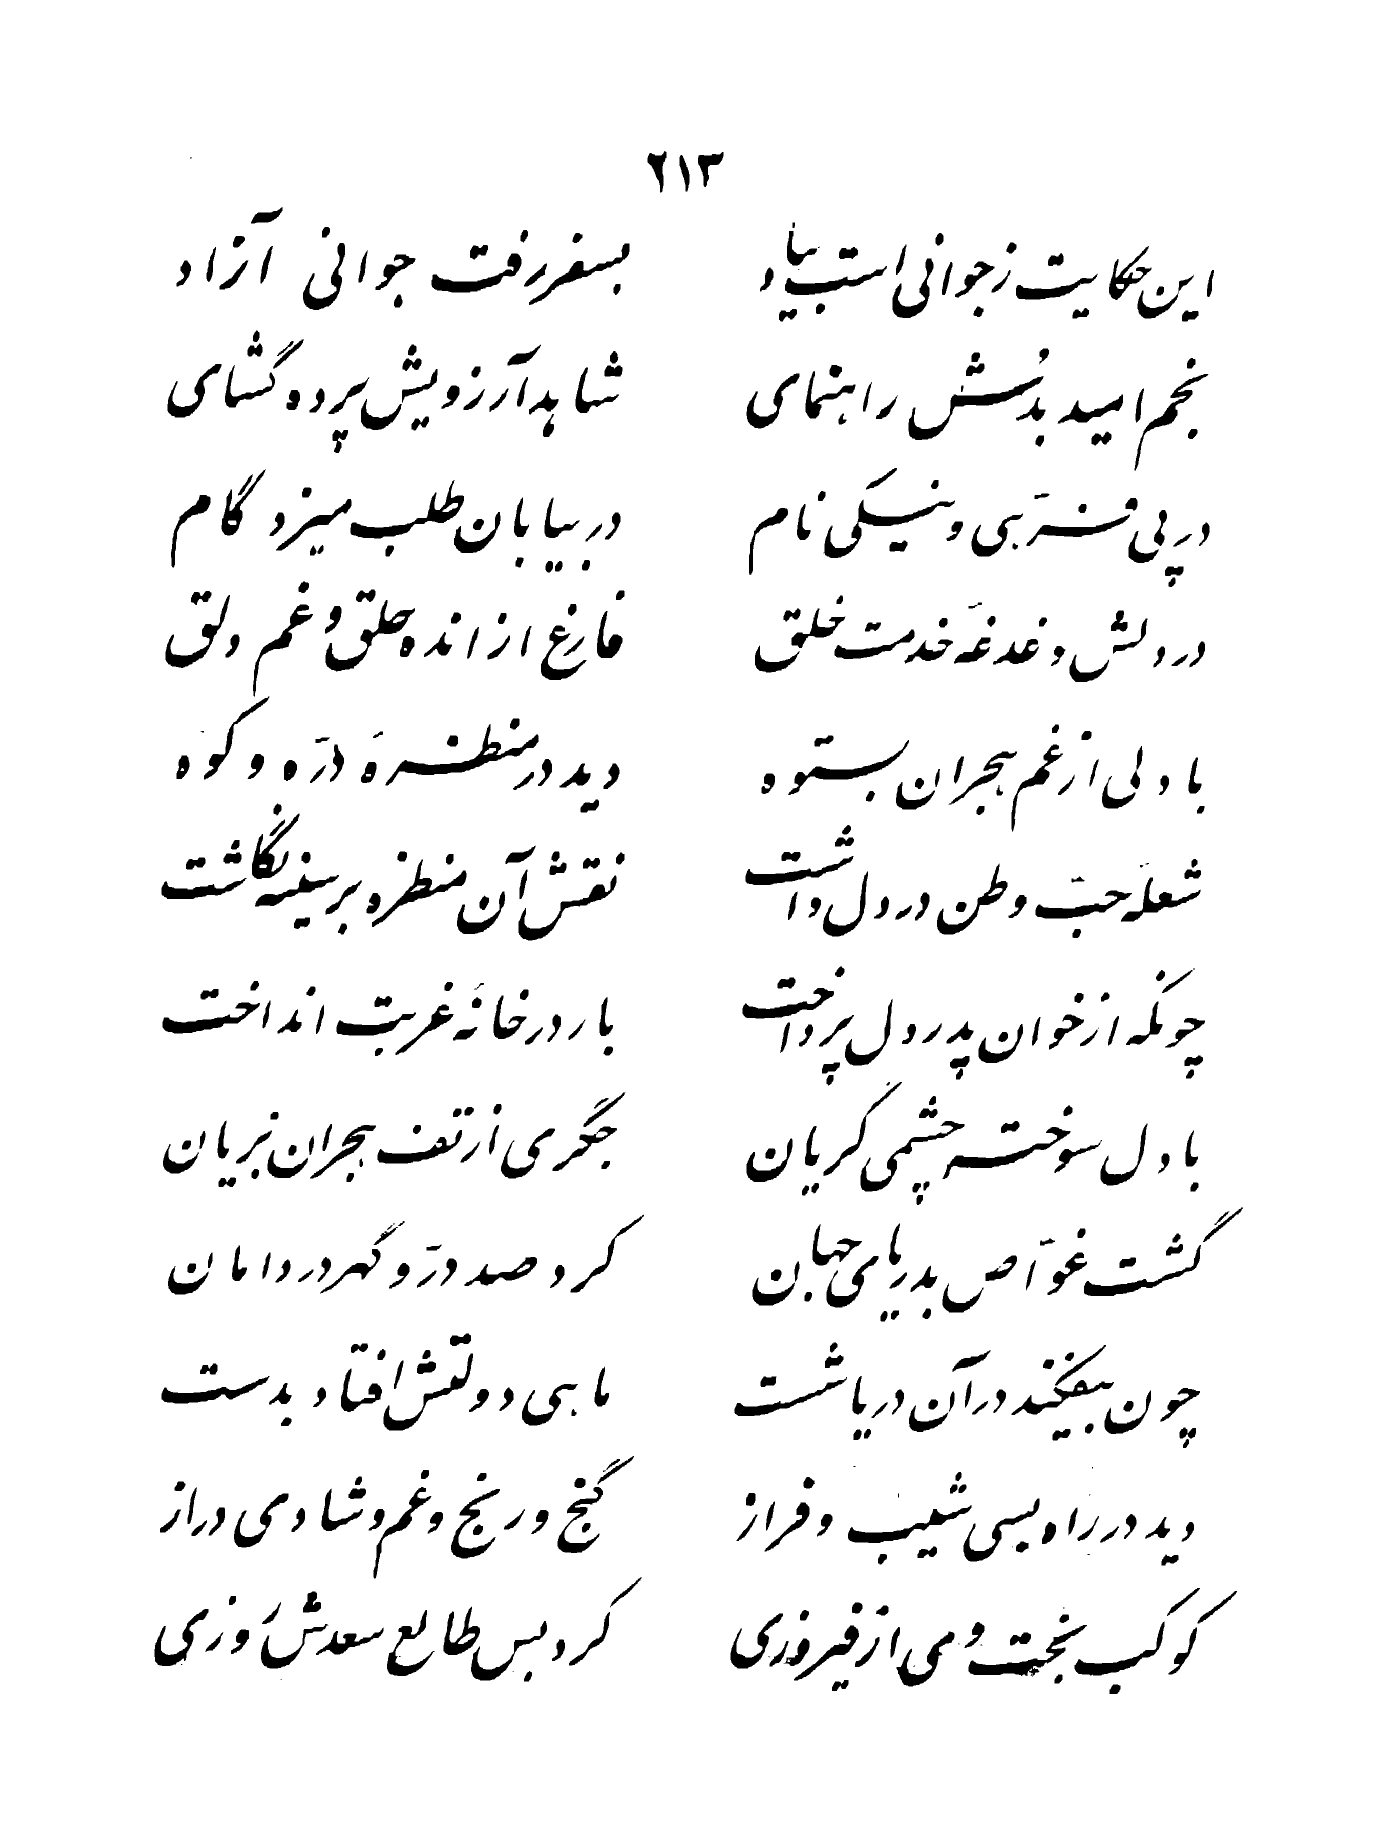 ۲۱۳
این حکایت ز جوانی است بیاد	بسفر رفت جوانی آزاد
نجم امید بدُش راهنمای	شاهد آرزویش پرده گشای
در پی فرّبی و نیکی نام	در بیابان طلب میزد گام
در دلش دغدغهٔ خدمت خلق	فارغ از انده حلق و غم دلق
با دلی از غم هجران بستوه	دید در منظرهٔ درّه و کوه
شعلهٔ حبّ وطن در دل داشت	نقش آن منظره بر سینه نگاشت
چونکه از خوان پدر دل پرداخت	بار در خانهٔ غربت انداخت
با دل سوخته چشمی گریان	جگری از تف هجران بریان
گشت غوّاص بدریای جهان	کرد صد درّ و گهر در دامان
چون بیفکند در آن دریا شست	ماهی دولتش افتاد بدست
دید در راه بسی شیب و فراز	گنج و رنج و غم و شادی دراز
کوکب بخت وی از فیروزی	کرد بس طالع سعدش روزی